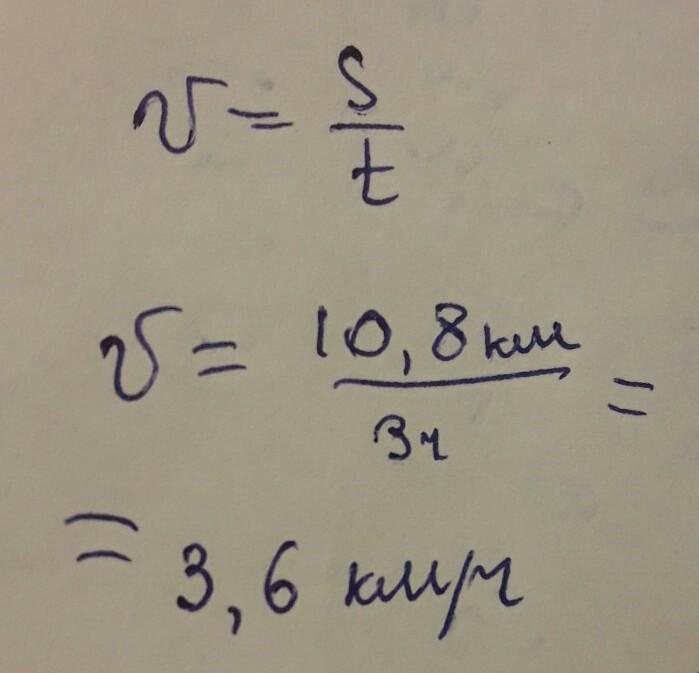 v = s/t
v = 10,8км/3ч =
= 3,6 км/ч